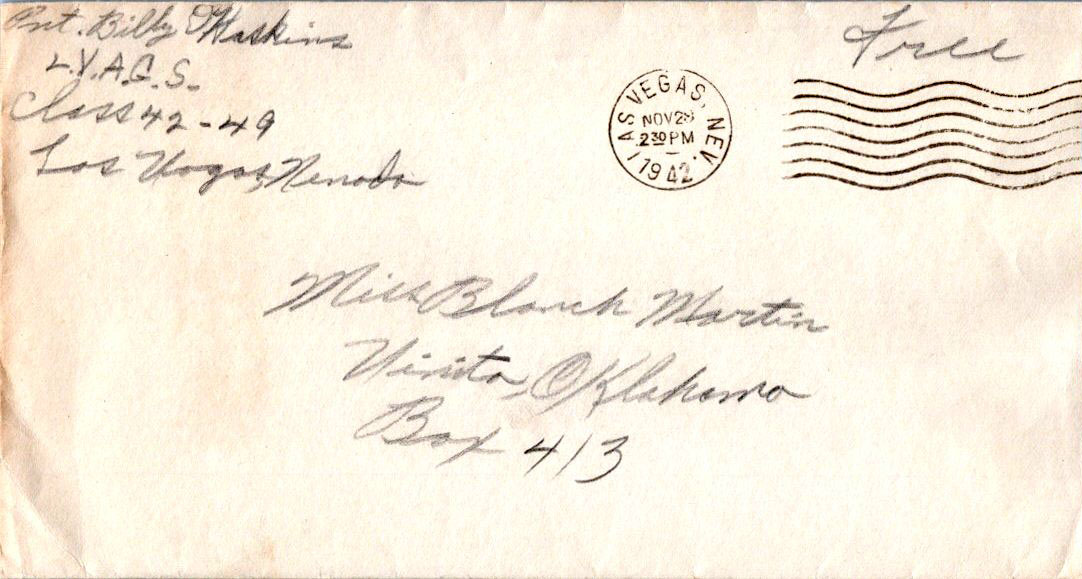 Pvt. Billy O Haskins
L.V.A.G.S.
Class 42-49
Las Vegas, Nevada
Free
LAS VEGAS, NEV.
NOV 28
2 30 PM
1942
Miss Blanch Martin
Vinita, Oklahoma
Box 413